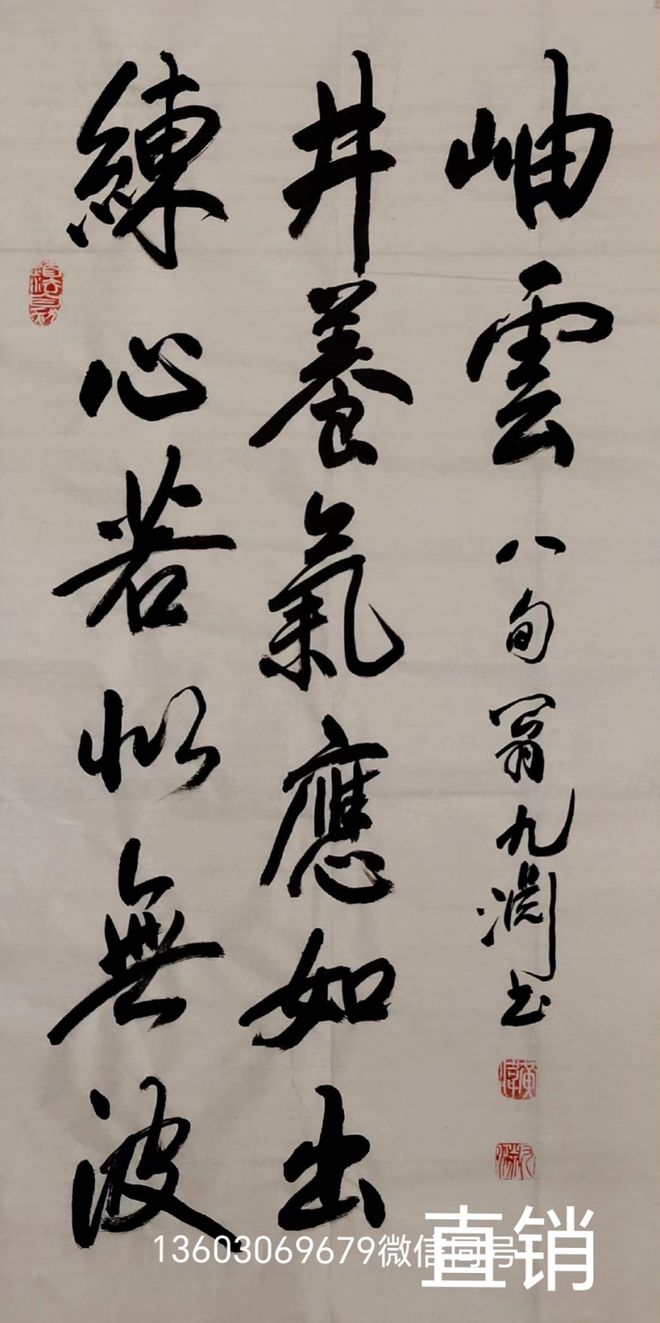 練心若似無波
井養氣應如出
岫雲
八旬翁九淵书
13603069679微信同号
直销